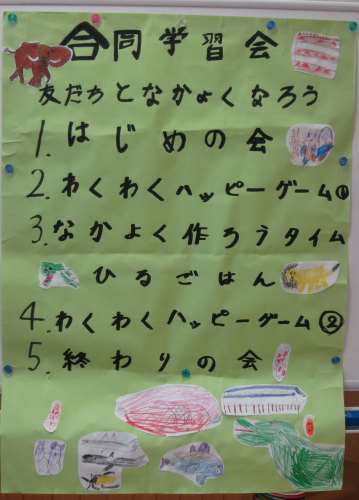 合同学習会
友だちとなかよくなろう
1.はじめの会
2.わくわくハッピーゲーム①
3.なかよく作ろうタイム
ひるごはん
4.わくわくハッピーゲーム②
5.終わりの会